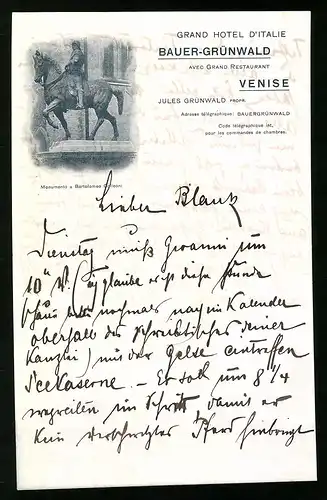 GRAND HOTEL D'ITALIE
BAUER-GRÜNWALD
AVEC GRAND RESTAURANT
VENISE
JULES GRÜNWALD PROPR.
Adresse télégraphique: BAUERGRÜNWALD
Code télégraphique int.
pour les commandes de chambres.
Monumento a Bartolomeo Colleoni
Lieber Blank
Dienstag muß Giovanni um
10 ich glaube er ist diese Stunde
nochmals nach im Kalender
oberhalb des Schreibtisches deiner
Kanzlei) mit der Gelse eintreffen
Kaserne. – Er soll um 8 1/4
wegreiten im Schritt damit er
kein Pferd hinbringt